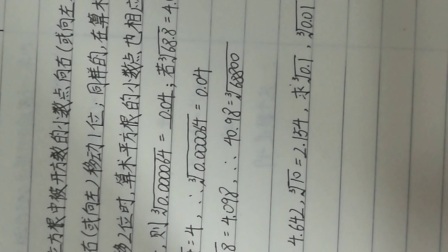 方根中被开方数的小数点向右(或向左
右(或向左)移动1位;同样的,在算术
2位时,算术平方根的小数点也相应
,则∛0.000064 = 0.04;若∛68.8 = 4.
=4,∴∛0.000064 = 0.04
8 = 4.098 ∴ 40.98 = ∛68800
4.642,∛10 = 2.154,求∛0.1,∛0.01